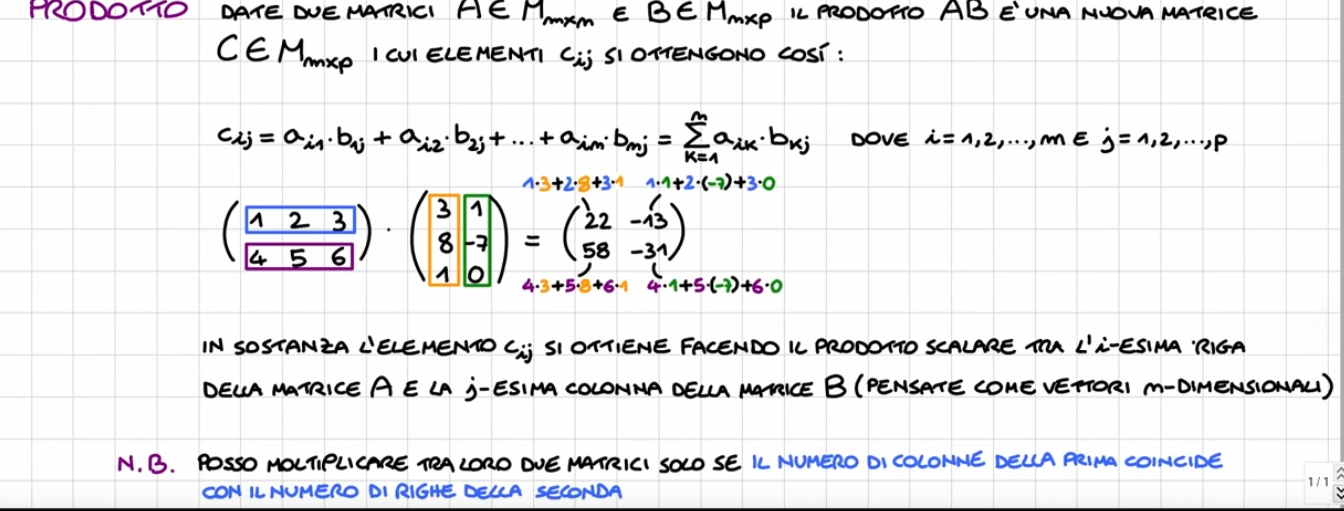 PRODOTTO DATE DUE MATRICI A ∈ Mmxn E B ∈ Mnxp IL PRODOTTO AB E' UNA NUOVA MATRICE
C ∈ Mmxp I CUI ELEMENTI cij SI OTTENGONO COSÍ :
cij = ai1·b1j + ai2·b2j + ... + ain·bnj = Σ(K=1, n) aiK·bKj DOVE i=1,2,...,m E j=1,2,...,p
1·3+2·8+3·1 1·1+2·(-7)+3·0
(1 2 3) (3 1) (22 -13)
(4 5 6) · (8 -7) = (58 -31)
(1 0)
4·3+5·8+6·1 4·1+5·(-7)+6·0
IN SOSTANZA L'ELEMENTO cij SI OTTIENE FACENDO IL PRODOTTO SCALARE TRA L'i-ESIMA RIGA
DELLA MATRICE A E LA j-ESIMA COLONNA DELLA MATRICE B (PENSATE COME VETTORI n-DIMENSIONALI)
N.B. POSSO MOLTIPLICARE TRA LORO DUE MATRICI SOLO SE IL NUMERO DI COLONNE DELLA PRIMA COINCIDE
CON IL NUMERO DI RIGHE DELLA SECONDA
1/1